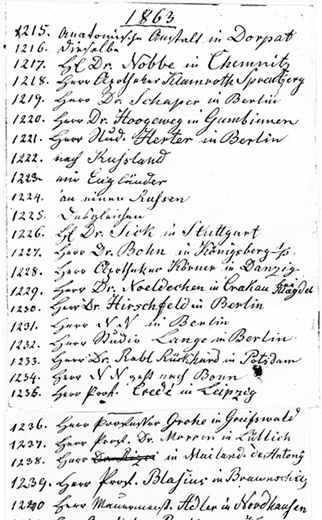 1863
1215. Anatomische Anstalt in Dorpat
1216. Dieselbe
1217. Hl. Dr. Nobbe in Chemnitz
1218. Herr Apotheker Klamroth Spremberg
1219. Herr Dr. Schaper in Berlin
1220. Herr Dr. Hoogeweg in Gumbinnen
1221. Herr Stud. Herter in Berlin
1222. nach Russland
1223. ein Engländer
1224. an einen Russen
1225. Desgleichen
1226. Hl. Dr. Sick in Stuttgart
1227. Herr Dr. Bohn in Königsberg i/p.
1228. Herr Apotheker Körner in Danzig
1229. Herr Dr. Noeldechen in Crakau
1230. Herr Dr. Hirschfeld in Berlin
1231. Herr N N in Berlin
1232. Herr Studio Lange in Berlin
1233. Herr Dr. Rabl Rückhard in Potsdam
1234. Herr N N nach Bonn
1235. Herr Prof. Credé in Leipzig
1236. Herr Professor Grohe in Greifswald
1237. Herr Prof. Dr. Morren in Lüttich
1238. Herr in Mailand
1239. Herr Prof. Blasius in Braunschweig
1240 Herr Mauermeist. Adler in Nordhausen